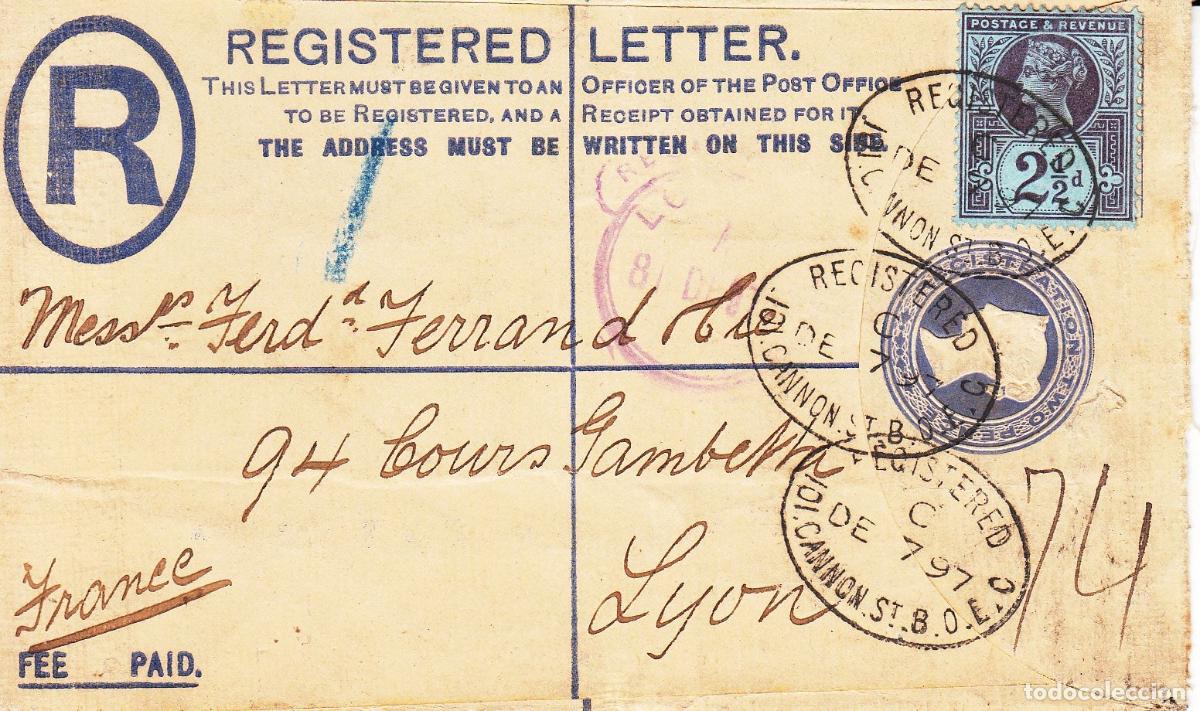 R
REGISTERED LETTER.
THIS LETTER MUST BE GIVEN TO AN OFFICER OF THE POST OFFICE
TO BE REGISTERED, AND A RECEIPT OBTAINED FOR IT
THE ADDRESS MUST BE WRITTEN ON THIS SIDE.
POSTAGE & REVENUE
2½d
REGISTERED
DE
101. CANNON ST. B.O.E.C
8 DE
REGISTERED
C
DE 7 97
101. CANNON. ST. B.O.
Messrs Ferdd Ferrand &
94 Cours Gambetta
Lyon
France
REGISTERED
C
DE 7 97
101. CANNON. ST. B.O.E.C
74
FEE PAID.
todocoleccion